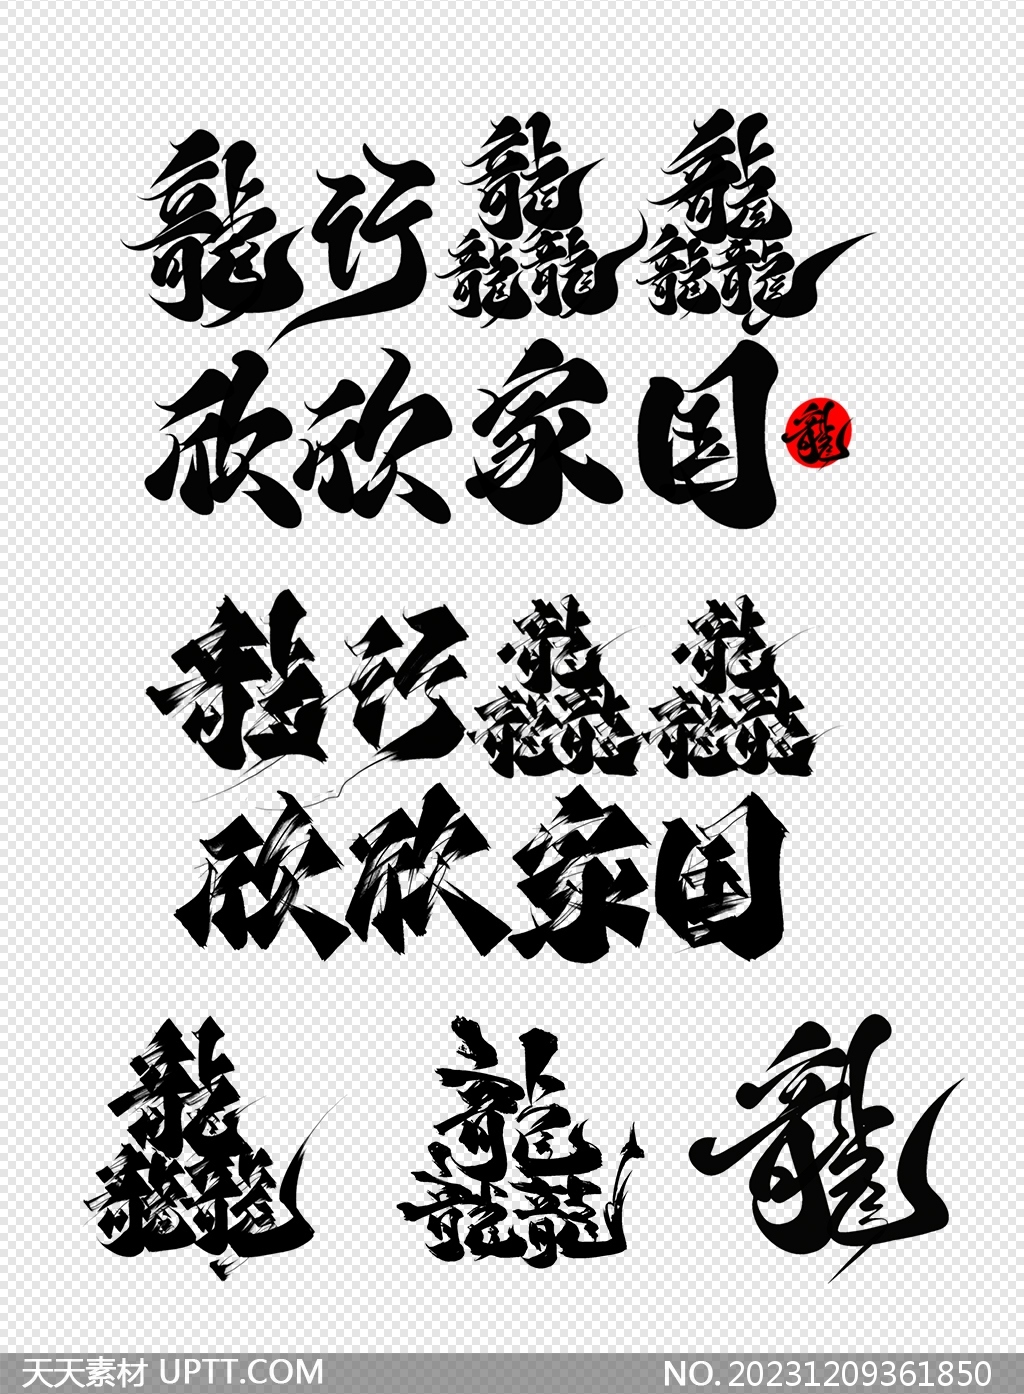 龍行龘龘
欣欣家国
龍
龍行龘龘
欣欣家国
龘 龘 龍
天天素材 UPTT.COM NO.20231209361850